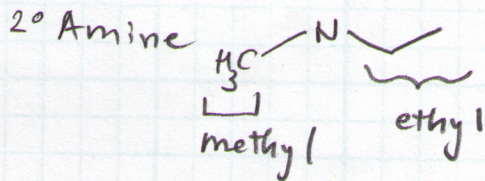 2° Amine
H₃C N
methyl ethyl